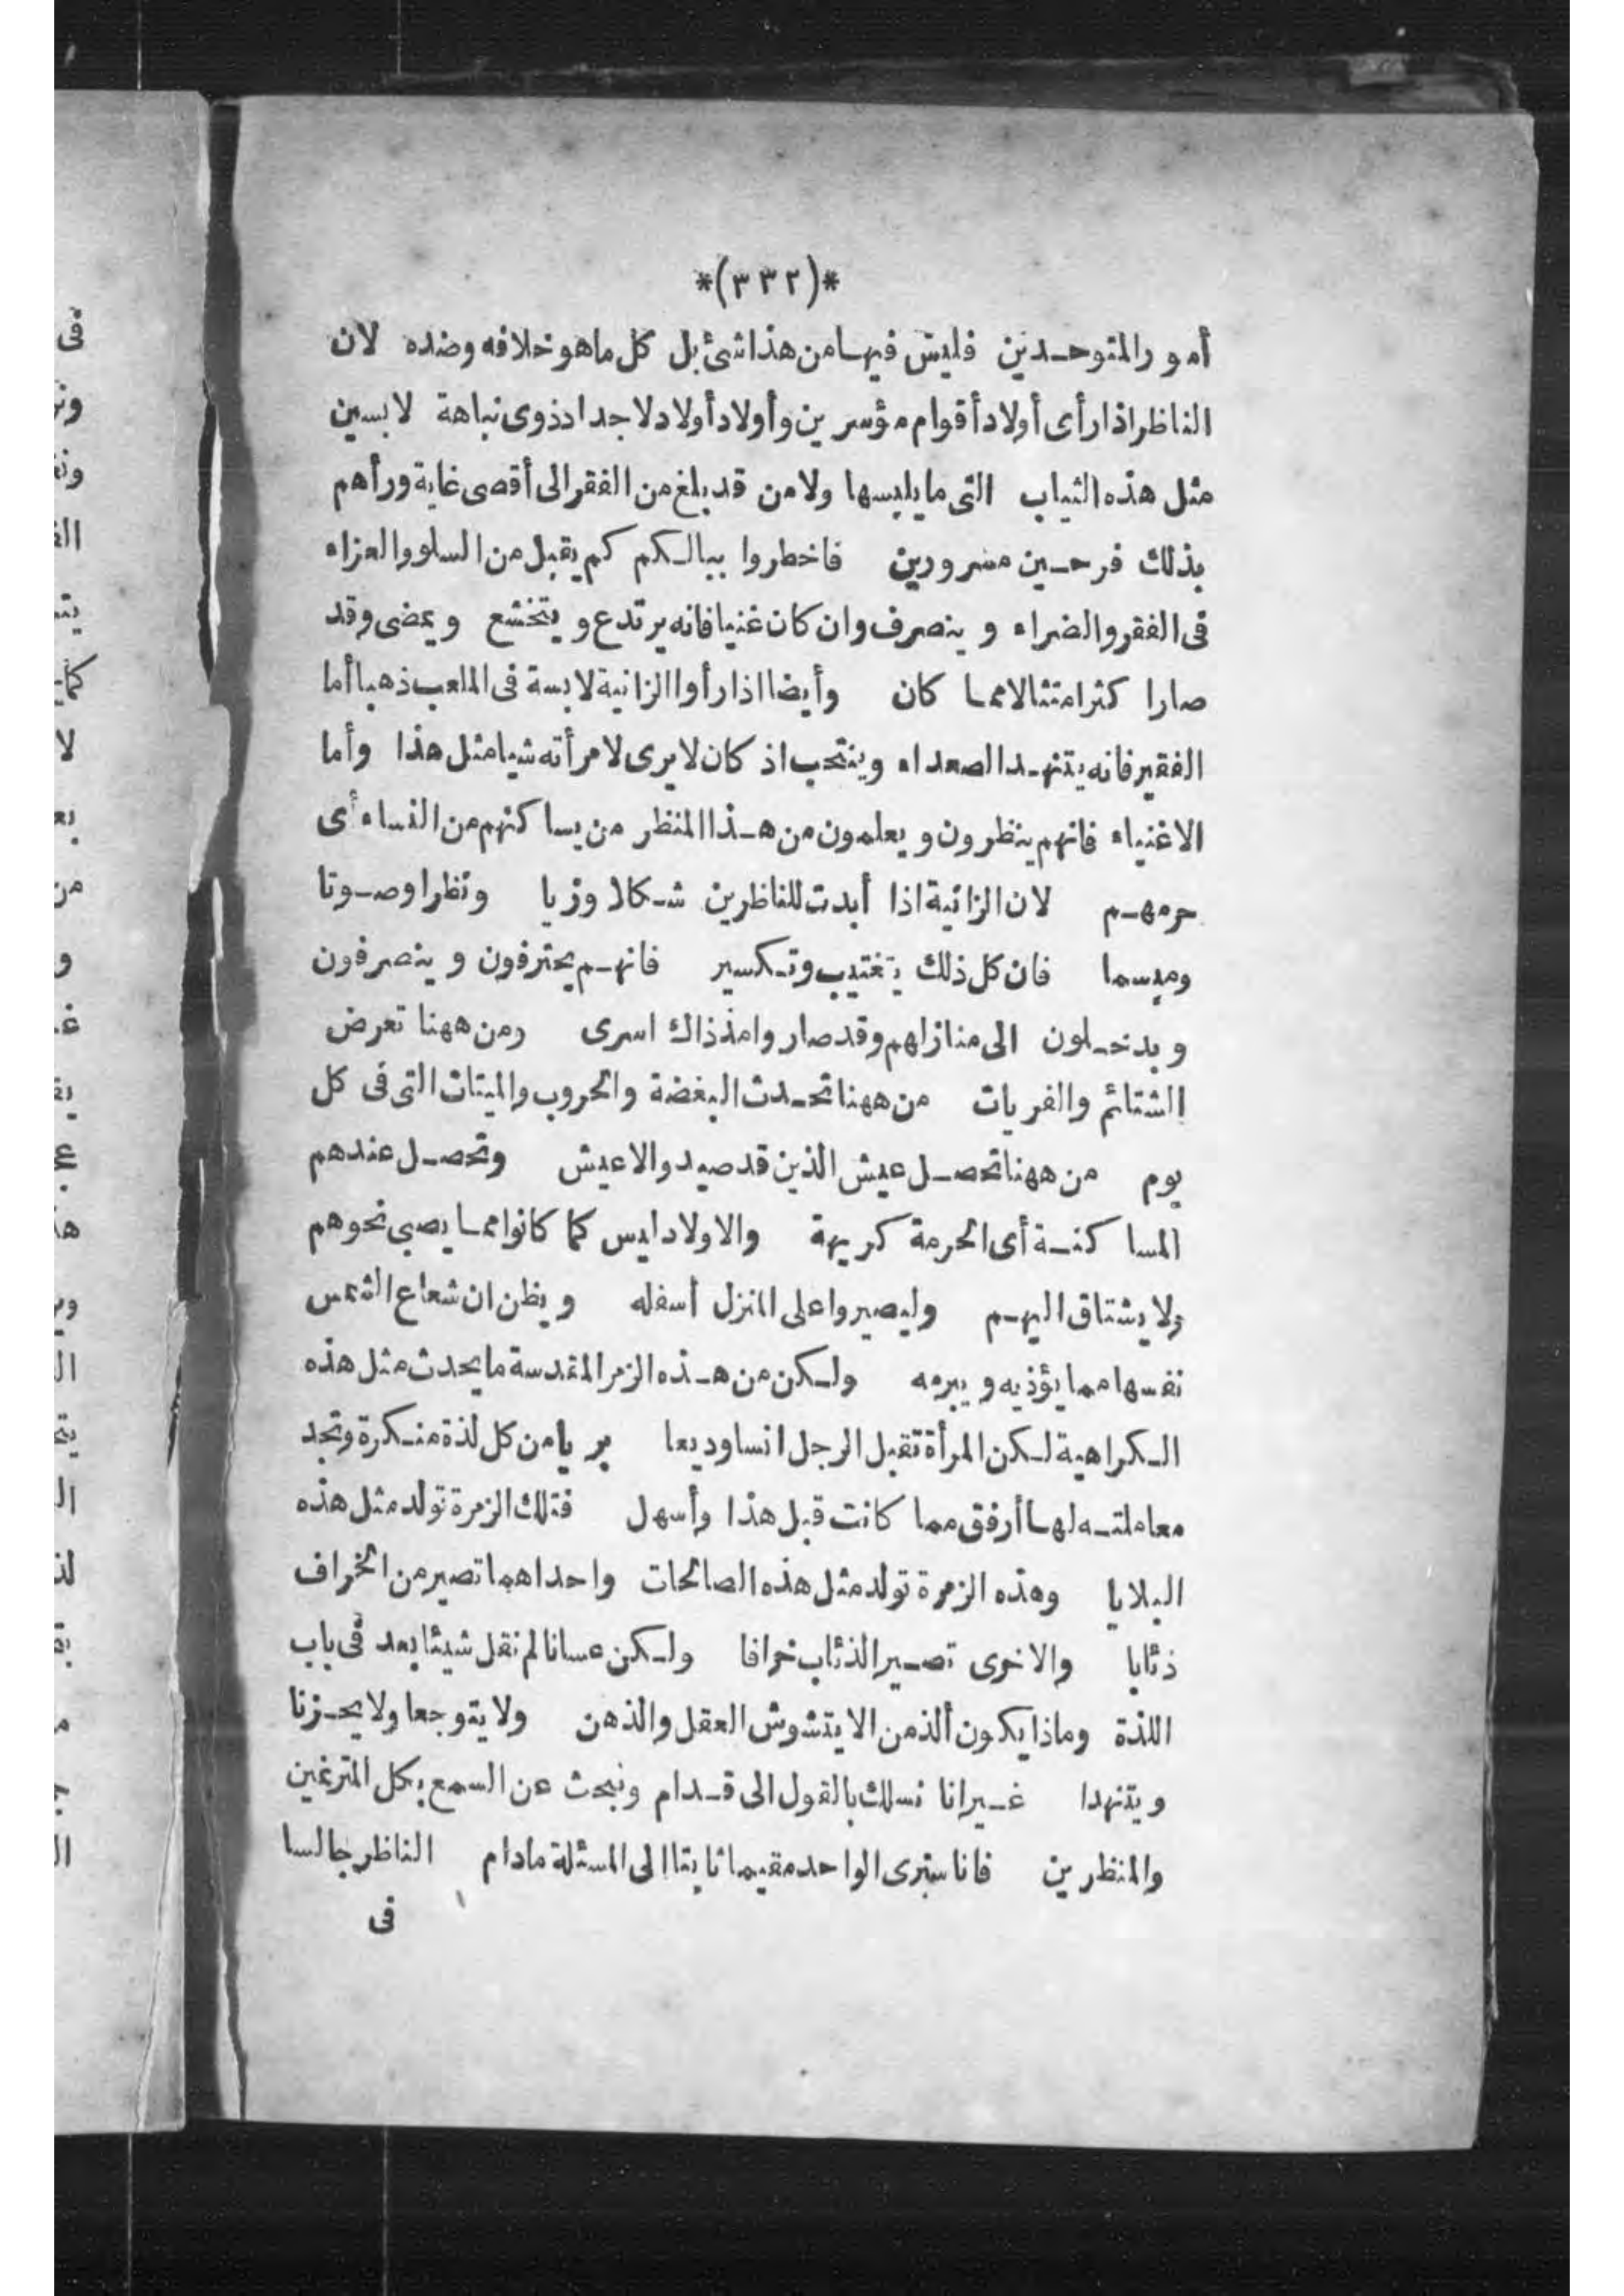 *(٣٣٢)*
أمور المتوحدين فليس فيها من هذا شئ بل كل ما هو خلافه وضده لان
الناظر اذا رأى أولاد أقوام مؤسرين وأولاد أولاد لاجداد ذوى نباهة لابسين
مثل هذه الثياب التى ما يلبسها ولا من قد بلغ من الفقر الى أقصى غاية ورأهم
بذلك فرحين مسرورين فاخطروا ببالكم كم يقبل من السلو والعزاء
فى الفقر والضراء وينصرف وان كان غنيا فانه يرتدع ويتخشع ويمضى وقد
صار اكثر امتثالا مما كان وأيضا اذا رأوا الزانية لابسة فى الملعب ذهبا أما
الفقير فانه يتنهد الصعداء وينتحب اذ كان لا يرى لامرأته شيا مثل هذا وأما
الاغنياء فانهم ينظرون ويعلمون من هذا المنظر من يساكنهم من النساء أى
حرمهم لان الزانية اذا أبدت للناظرين شكلا وزيا ونظرا وصوتا
وميسما فان كل ذلك تغتيب وتكسير فانهم يحترفون وينصرفون
ويدخلون الى منازلهم وقد صاروا مذ ذاك اسرى ومن ههنا تعرض
الشتائم والفريات من ههنا تحدث البغضة والحروب والميتات التى فى كل
يوم من ههنا تحصل عيش الذين قد صيدوا لاعيش وتحصل عندهم
المساكنة أى الحرمة كريهة والاولاد ليس كما كانوا مما يصبى نحوهم
ولا يشتاق اليهم وليصيروا على المنزل أسفله ويظن ان شعاع الشمس
نفسها مما يؤذيه ويبرمه ولكن من هذه الزمر المقدسة ما يحدث مثل هذه
الكراهية لكن المرأة تقبل الرجل انسا وديعا بريا من كل لذة منكرة وتجد
معاملته لها أرفق مما كانت قبل هذا وأسهل فتلك الزمرة تولد مثل هذه
البلايا وهذه الزمرة تولد مثل هذه الصالحات واحداهما تصير من الخراف
ذئابا والاخرى تصير الذئاب خرافا ولكن عسانا لم نقل شيئا بعد فى باب
اللذة وماذا يكون ألذ من الا يتشوش العقل والذهن ولا يتوجعا ولا يحزنا
ويتنهدا غير انا نسلك بالقول الى قدام ونبحث عن السمع بكل المترغين
والمنظرين فانا سنرى الواحد مقيما ثابتا الى المسئلة مادام الناظر جالسا
فى